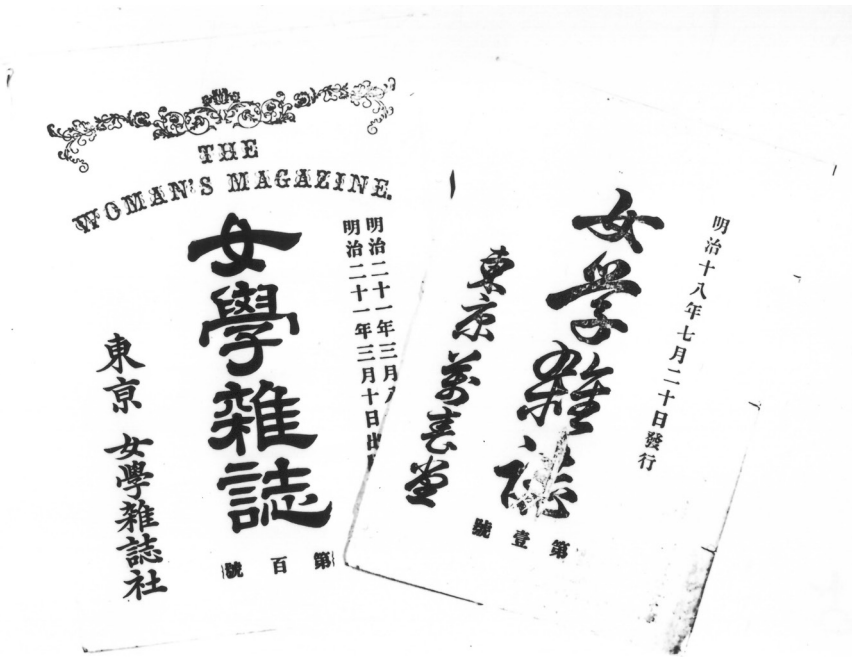 THE
WOMAN'S MAGAZINE.
明治二十一年三月
明治二十一年三月十日出
女學雜誌
東京 女學雜誌社
第百號
明治十八年七月二十日發行
女学雑誌
東京 萬春堂
第壹號